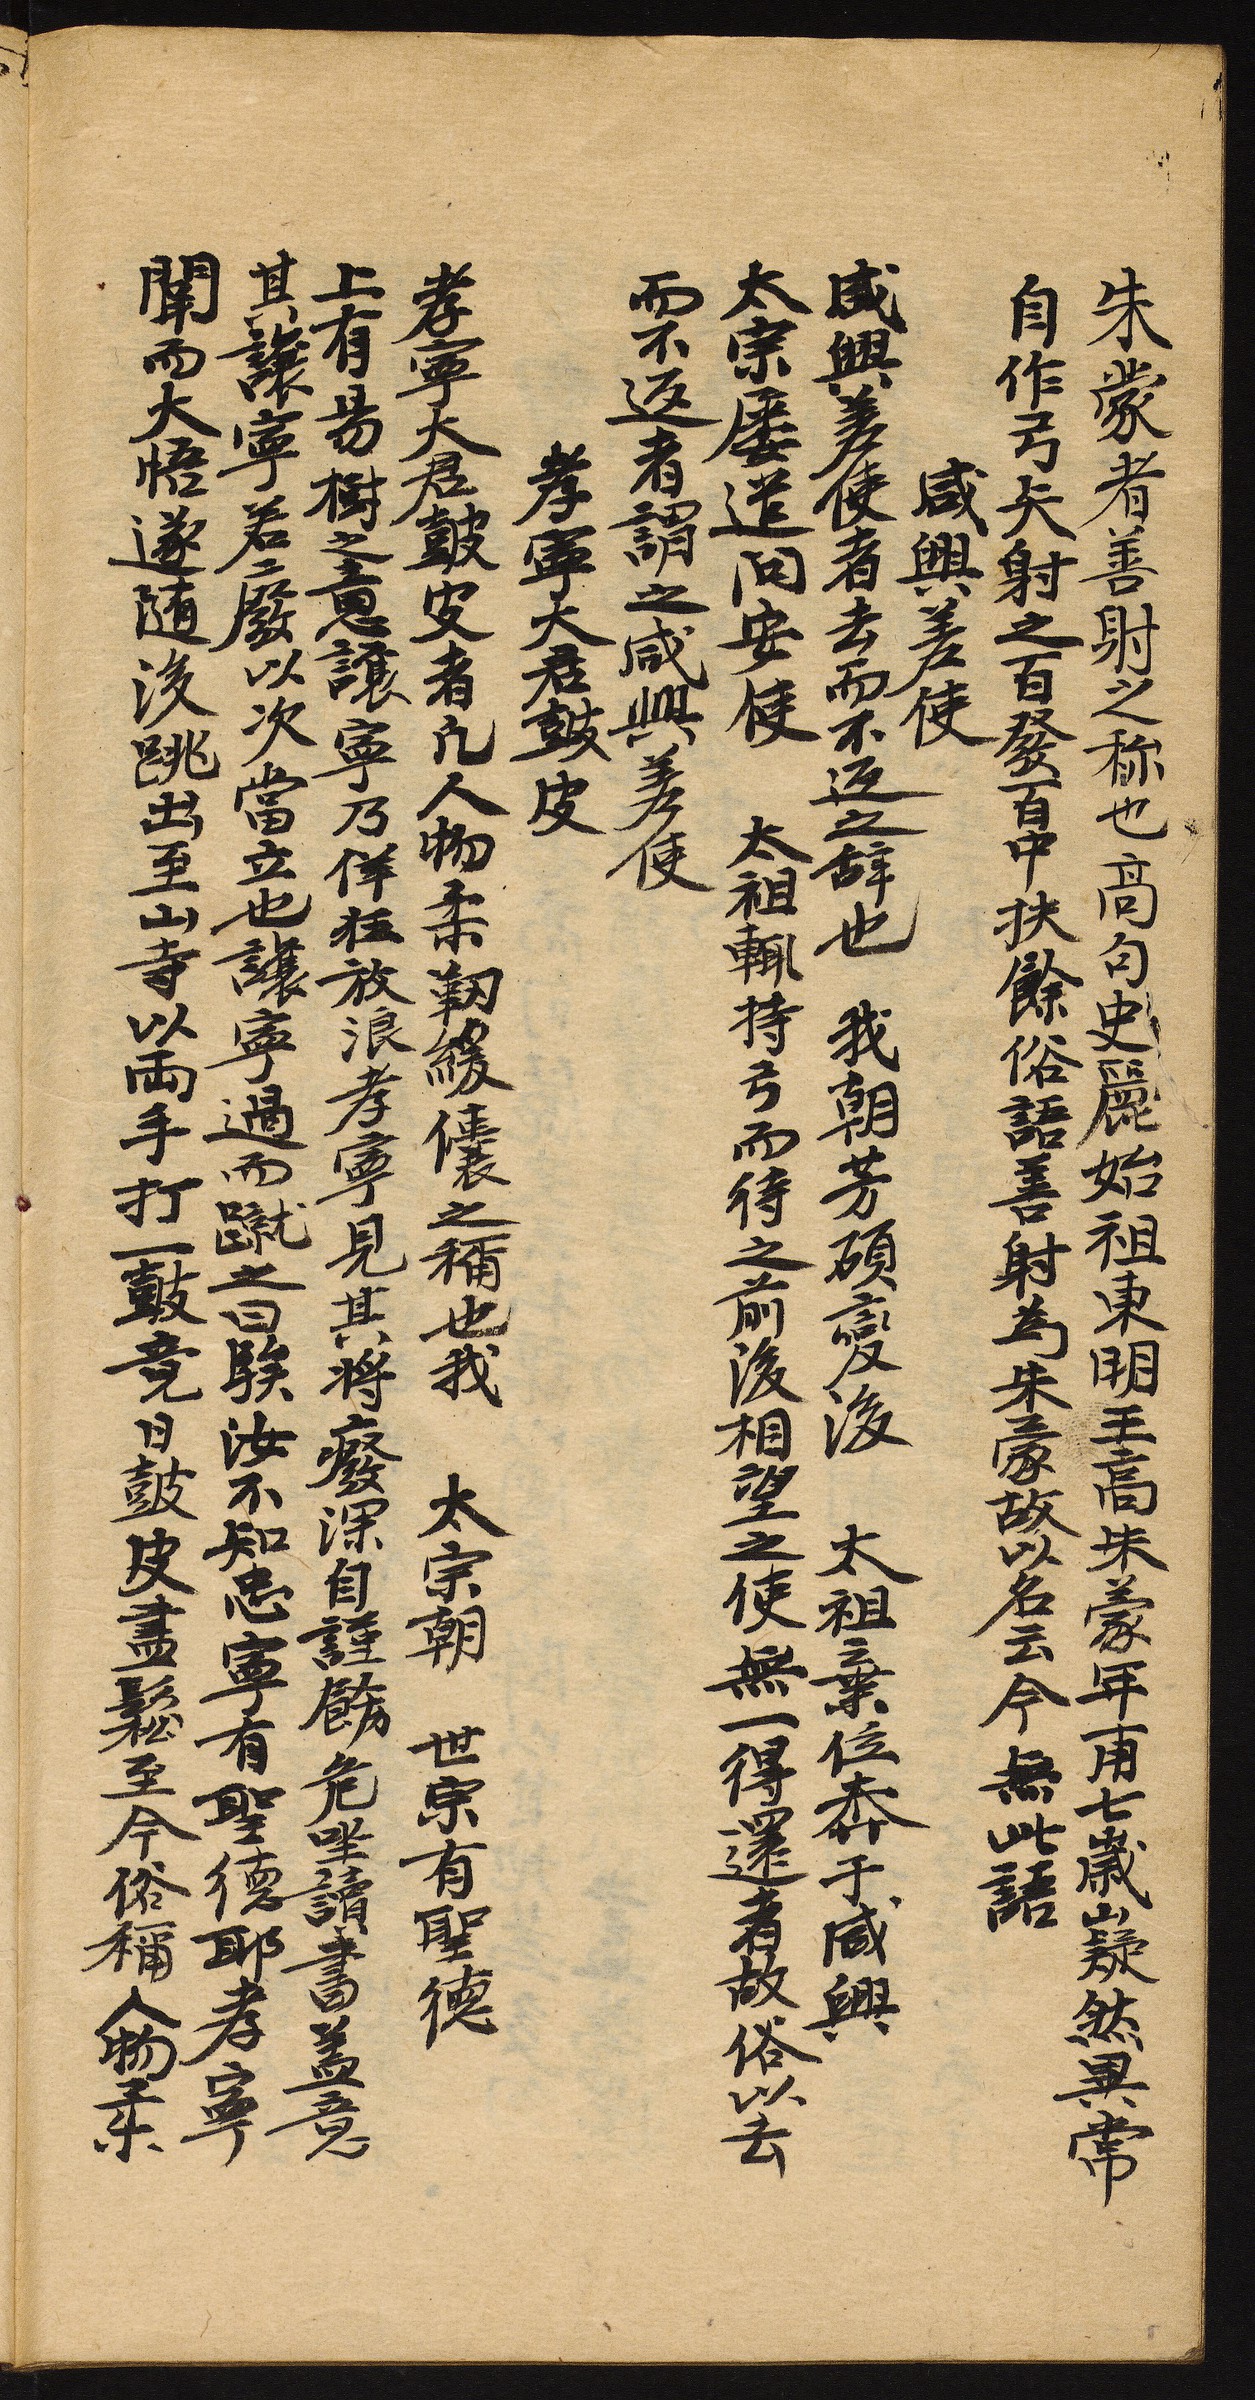 朱蒙者善射之称也高句史麗始祖東明王高朱蒙年甫七歲嶷然異常
自作弓矢射之百發百中扶餘俗語善射為朱蒙故以名云今無此語
咸興差使
咸興差使者去而不返之辞也 我朝芳碩變後 太祖棄位奔于咸興
太宗屡遣问安使 太祖輒持弓而待之前後相望之使無一得還者故俗以去
而不返者謂之咸興差使
孝寧大君皷皮
孝寧大君皷皮者凡人物柔韌緩儾之稱也我 太宗朝 世宗有聖德
上有易樹之意讓寧乃佯狂放浪孝寧見其將癈深自謹飭危坐讀書盖意
其讓寧若廢以次當立也讓寧過而蹴之曰騃汝不知忠寧有聖德耶孝寧
聞而大悟遂随後跳出至山寺以両手打一皷竟日皷皮盡鬆至今俗稱人物柔